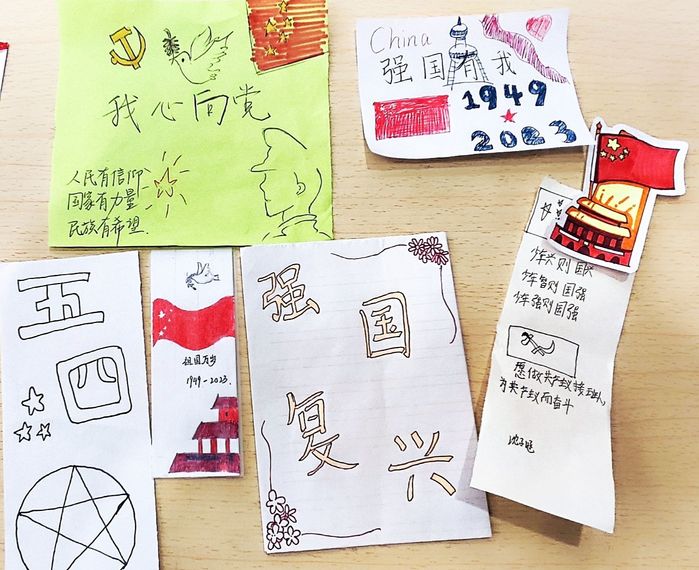 我心向党
人民有信仰
国家有力量
民族有希望.
China
强国有我
1949
2023
五
四
祖国万岁
1949-2023.
强
国
复
兴
少年智则国强
少年强则国强
愿做共产主义接班人,
为共产主义而奋斗